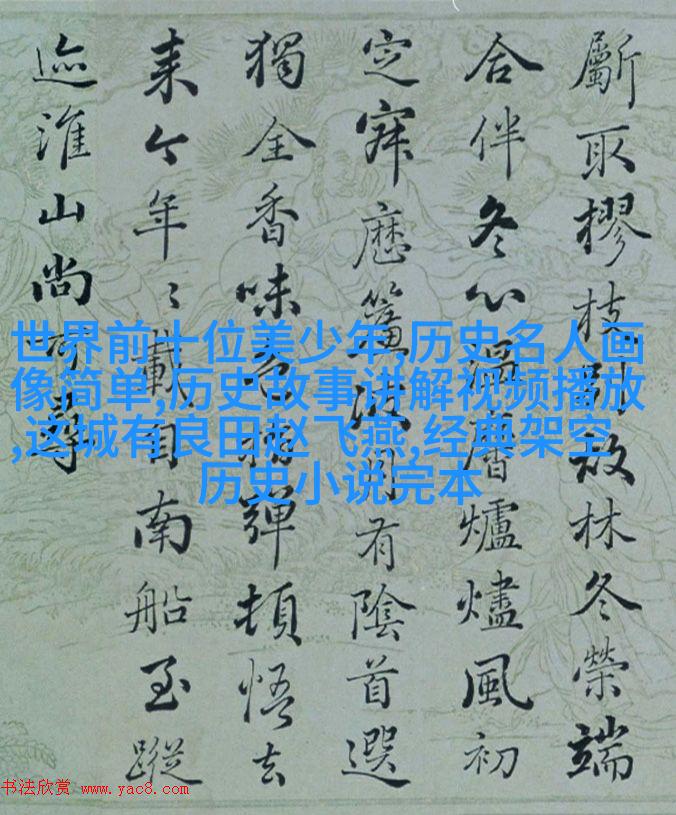 斸取樛枝故林冬榮端
合伴冬心爐燼風初
定寐歷有陰首選
獨全香味彈頓悟去
来今年〻載自南船至蹤
迹淮山尚可尋
世界前十位美少年,历史名人画
像简单,历史故事讲解视频播放
,这城有良田赵飞燕,经典架空
历史小说完本
书法欣赏 www.yac8.com